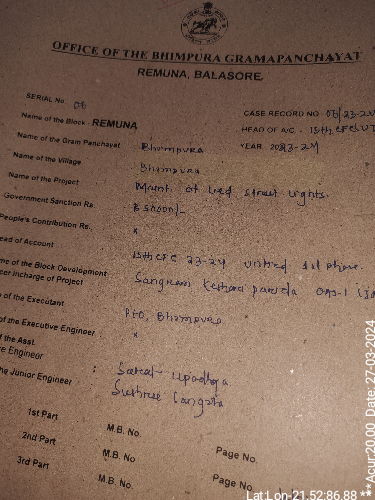 OFFICE OF THE BHIMPURA GRAMAPANCHAYAT
REMUNA, BALASORE
SERIAL No 06
CASE RECORD NO 06/23-24
Name of the Block - REMUNA
HEAD OF A/C. - 15th CFC
Name of the Gram Panchayat Bhimpura
YEAR 2023-24
Name of the Village Bhimpura
Name of the Project of Led Street Lights.
Government Sanction Rs.
People's Contribution Rs. x
ead of Account 15th CFC 23-24 untied 1st phase.
me of the Block Development
cer Incharge of Project Sangram Keshari OAS-I
of the Executant PEO, Bhimpura
of the Executive Engineer x
f the Asst.
ve Engineer : Sarat Upadhya
he Junior Engineer
1st Part M.B. No. Page No.
2nd Part M.B. No Page No.
3rd Part M.B. No.
Lat:Lon-21.52:86.88 **Acur:20.00 Date:27-03-2024